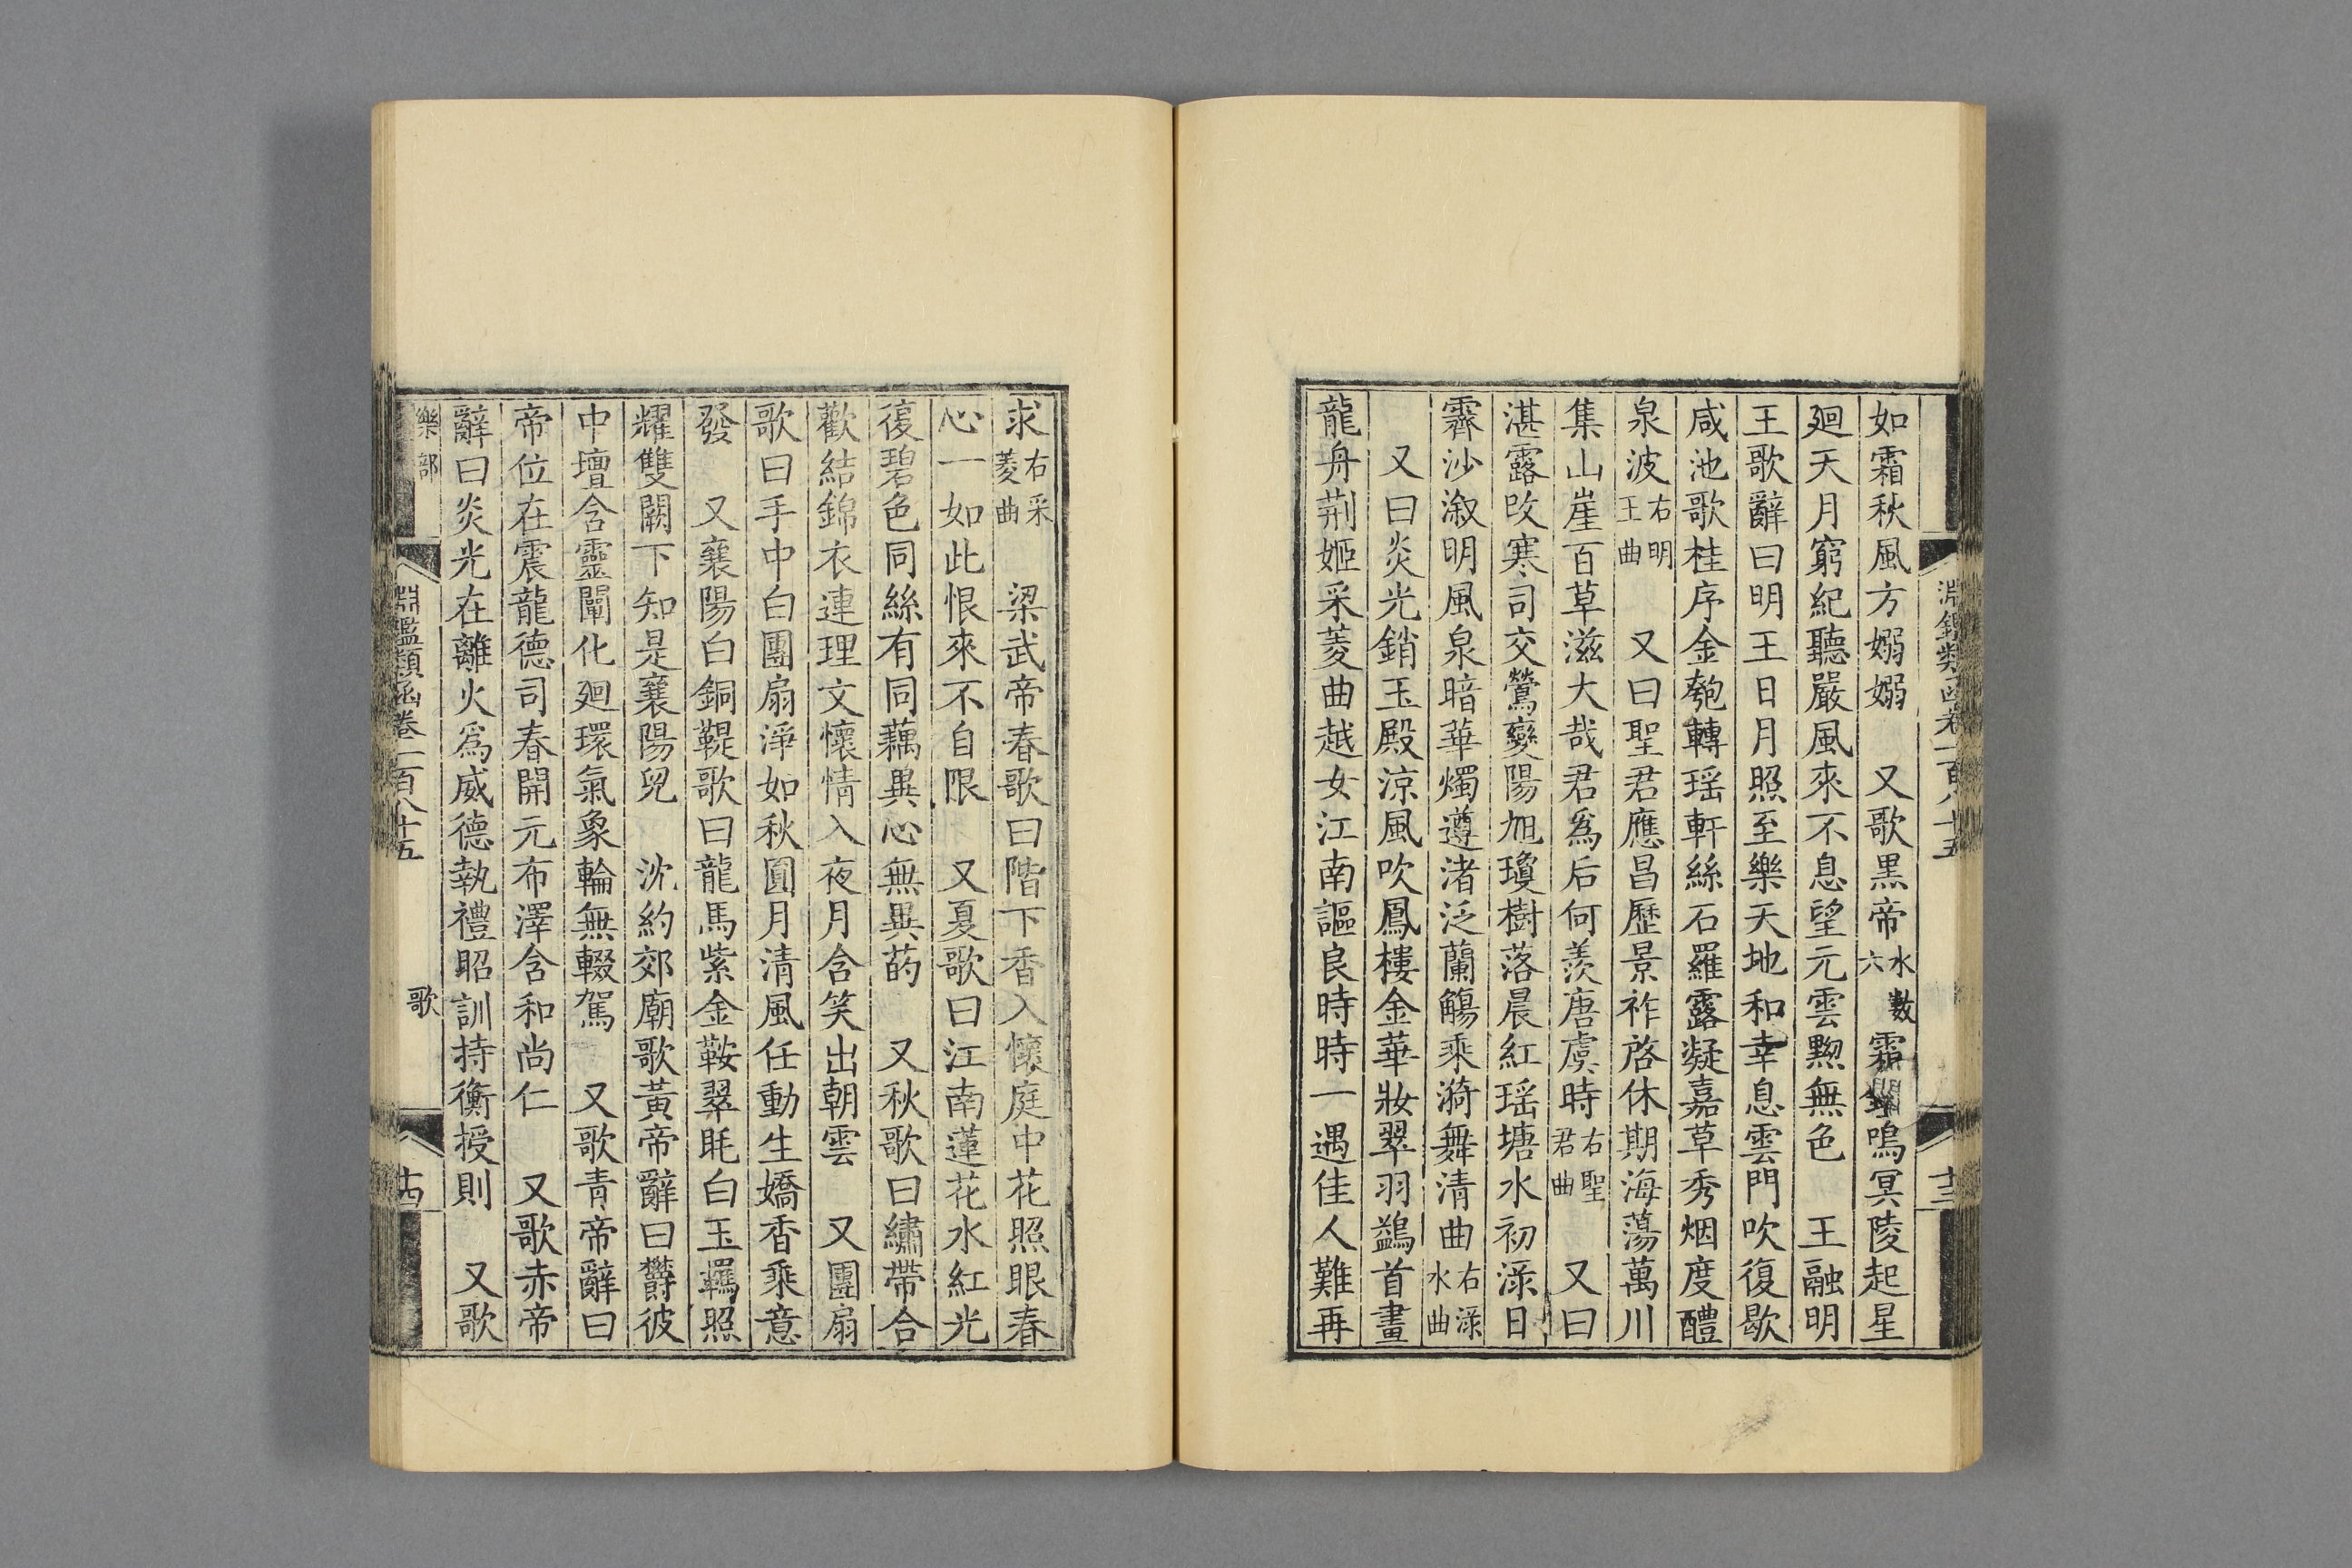 淵鑑類函卷一百八十五
十三
如霜秋風方嫋嫋　又歌黑帝水數六霜鳴冥陵起星
廻天月窮紀聽嚴風來不息望元雲黝無色　王融明
王歌辭曰明王日月照至樂天地和幸息雲門吹復歇
咸池歌桂序金匏轉瑶軒絲石羅露凝嘉草秀烟度醴
泉波右明王曲　又曰聖君應昌歷景祚啓休期海蕩萬川
集山崖百草滋大哉君爲后何羨唐虞時右聖君曲　又曰
湛露改寒司交鶯變陽旭瓊樹落晨紅瑶塘水初渌日
霽沙溆明風泉暗華燭遵渚泛蘭觴乘漪舞清曲右渌水曲
又曰炎光銷玉殿涼風吹鳳樓金華妝翠羽鷁首畫
龍舟荆姬采菱曲越女江南謳良時時一遇佳人難再
求右采菱曲　梁武帝春歌曰階下香入懷庭中花照眼春
心一如此恨來不自限　又夏歌曰江南蓮花水紅光
復碧色同絲有同藕異心無異菂　又秋歌曰繡帶合
歡結錦衣連理文懷情入夜月含笑出朝雲　又團扇
歌曰手中白團扇淨如秋圓月清風任動生嬌香乘意
發　又襄陽白銅鞮歌曰龍馬紫金鞍翠眊白玉羈照
耀雙闕下知是襄陽兒　沈約郊廟歌黃帝辭曰鬱彼
中壇含靈闡化廻環氣象輪無輟駕　又歌青帝辭曰
帝位在震龍德司春開元布澤含和尚仁　又歌赤帝
辭曰炎光在離火爲威德執禮昭訓持衡授則　又歌
樂部
淵鑑類函卷一百八十五
歌
十四